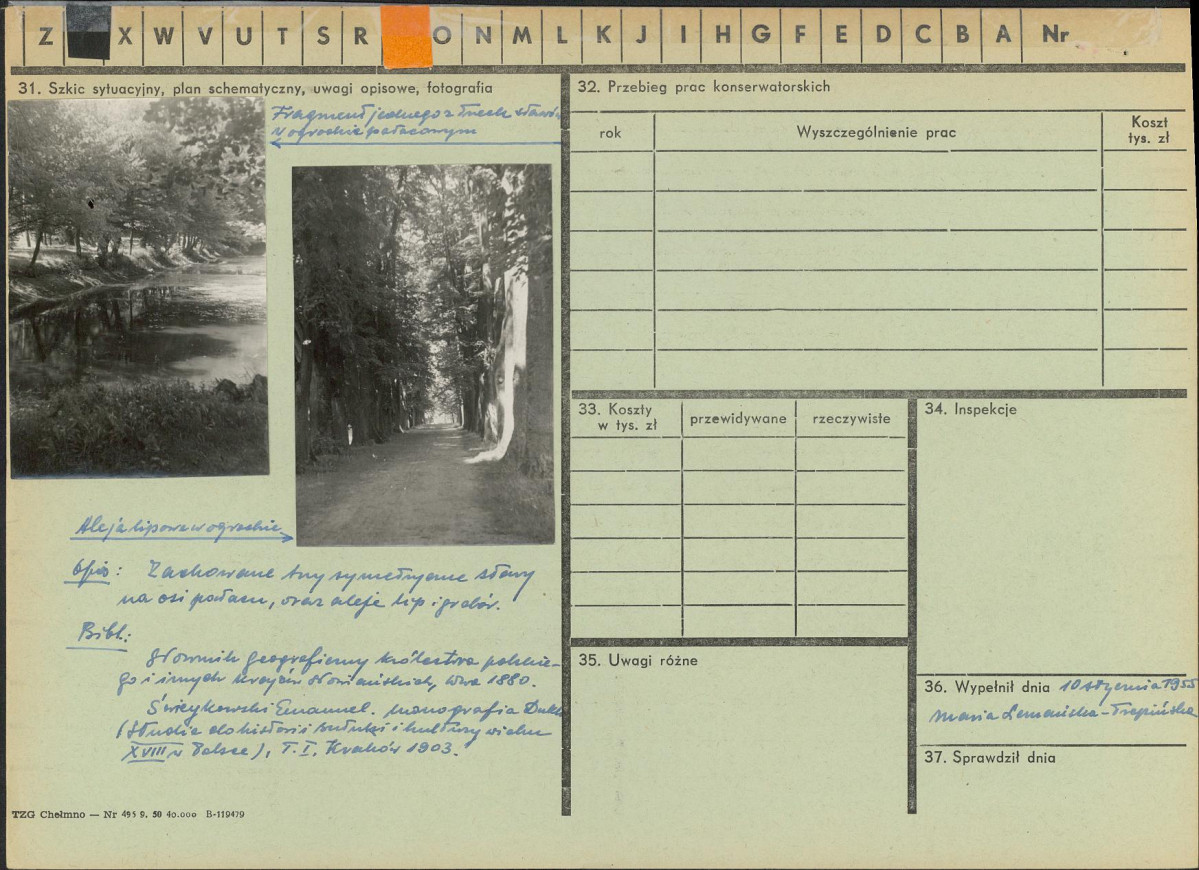 Z X W V U T S R O N M L K J I H G F E D C B A Nr
31. Szkic sytuacyjny, plan schematyczny, uwagi opisowe, fotografia
Fragment jednego z trzech stawów
w ogrodzie pałacowym
Aleja lipowa w ogrodzie
Opis: Zachowane trzy symetryczne stawy
na osi pałacu, oraz aleje lip i grabów.
Bibl:
Słownik geograficzny królestwa polskie-
go i innych krajów słowiańskich, W-wa 1880.
Świeykowski Emanuel. Monografia Dukli
(Studia do historii sztuki i kultury wieku
XVIII w Polsce), T. I. Kraków 1903.
TZG Chełmno — Nr 495 9. 50 40.000 B-119479
32. Przebieg prac konserwatorskich
rok
Wyszczególnienie prac
Koszt
tys. zł
33. Koszty
w tys. zł
przewidywane
rzeczywiste
34. Inspekcje
35. Uwagi różne
36. Wypełnił dnia 10 stycznia 1955
Maria Lemańska-Trepińska
37. Sprawdził dnia